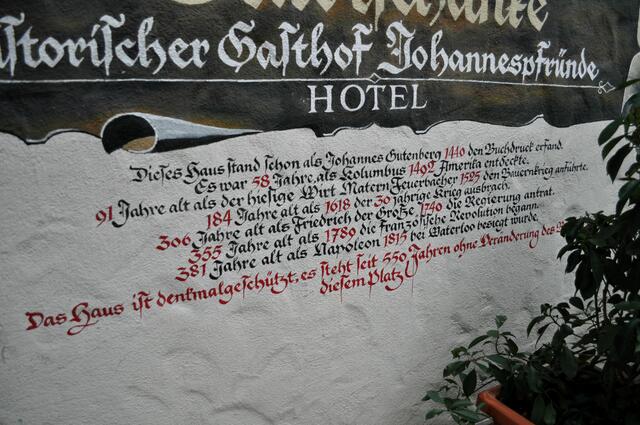 Historischer Gasthof Johannespfründe
HOTEL
Dieses Haus stand schon als Johannes Gutenberg 1440 den Buchdruck erfand.
Es war 58 Jahre, als Kolumbus 1492 Amerika entdeckte.
91 Jahre alt als der hiesige Wirt Matern Feuerbacher 1525 den Bauernkrieg anführte.
184 Jahre alt als 1618 der 30 jährige Krieg ausbrach.
306 Jahre alt als Friedrich der Große 1740 die Regierung antrat.
355 Jahre alt als 1789 die französische Revolution begann.
381 Jahre alt als Napoleon 1815 bei Waterloo besiegt wurde.
Das Haus ist denkmalgeschützt, es steht seit 550 Jahren ohne Veränderung des
diesem Platz